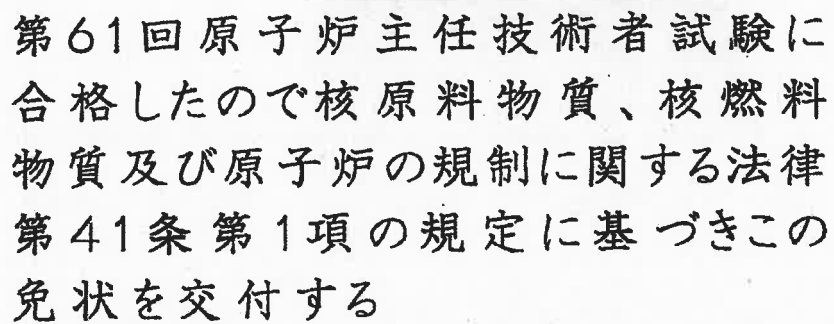 第61回原子炉主任技術者試験に
合格したので核原料物質、核燃料
物質及び原子炉の規制に関する法律
第41条第1項の規定に基づきこの
免状を交付する